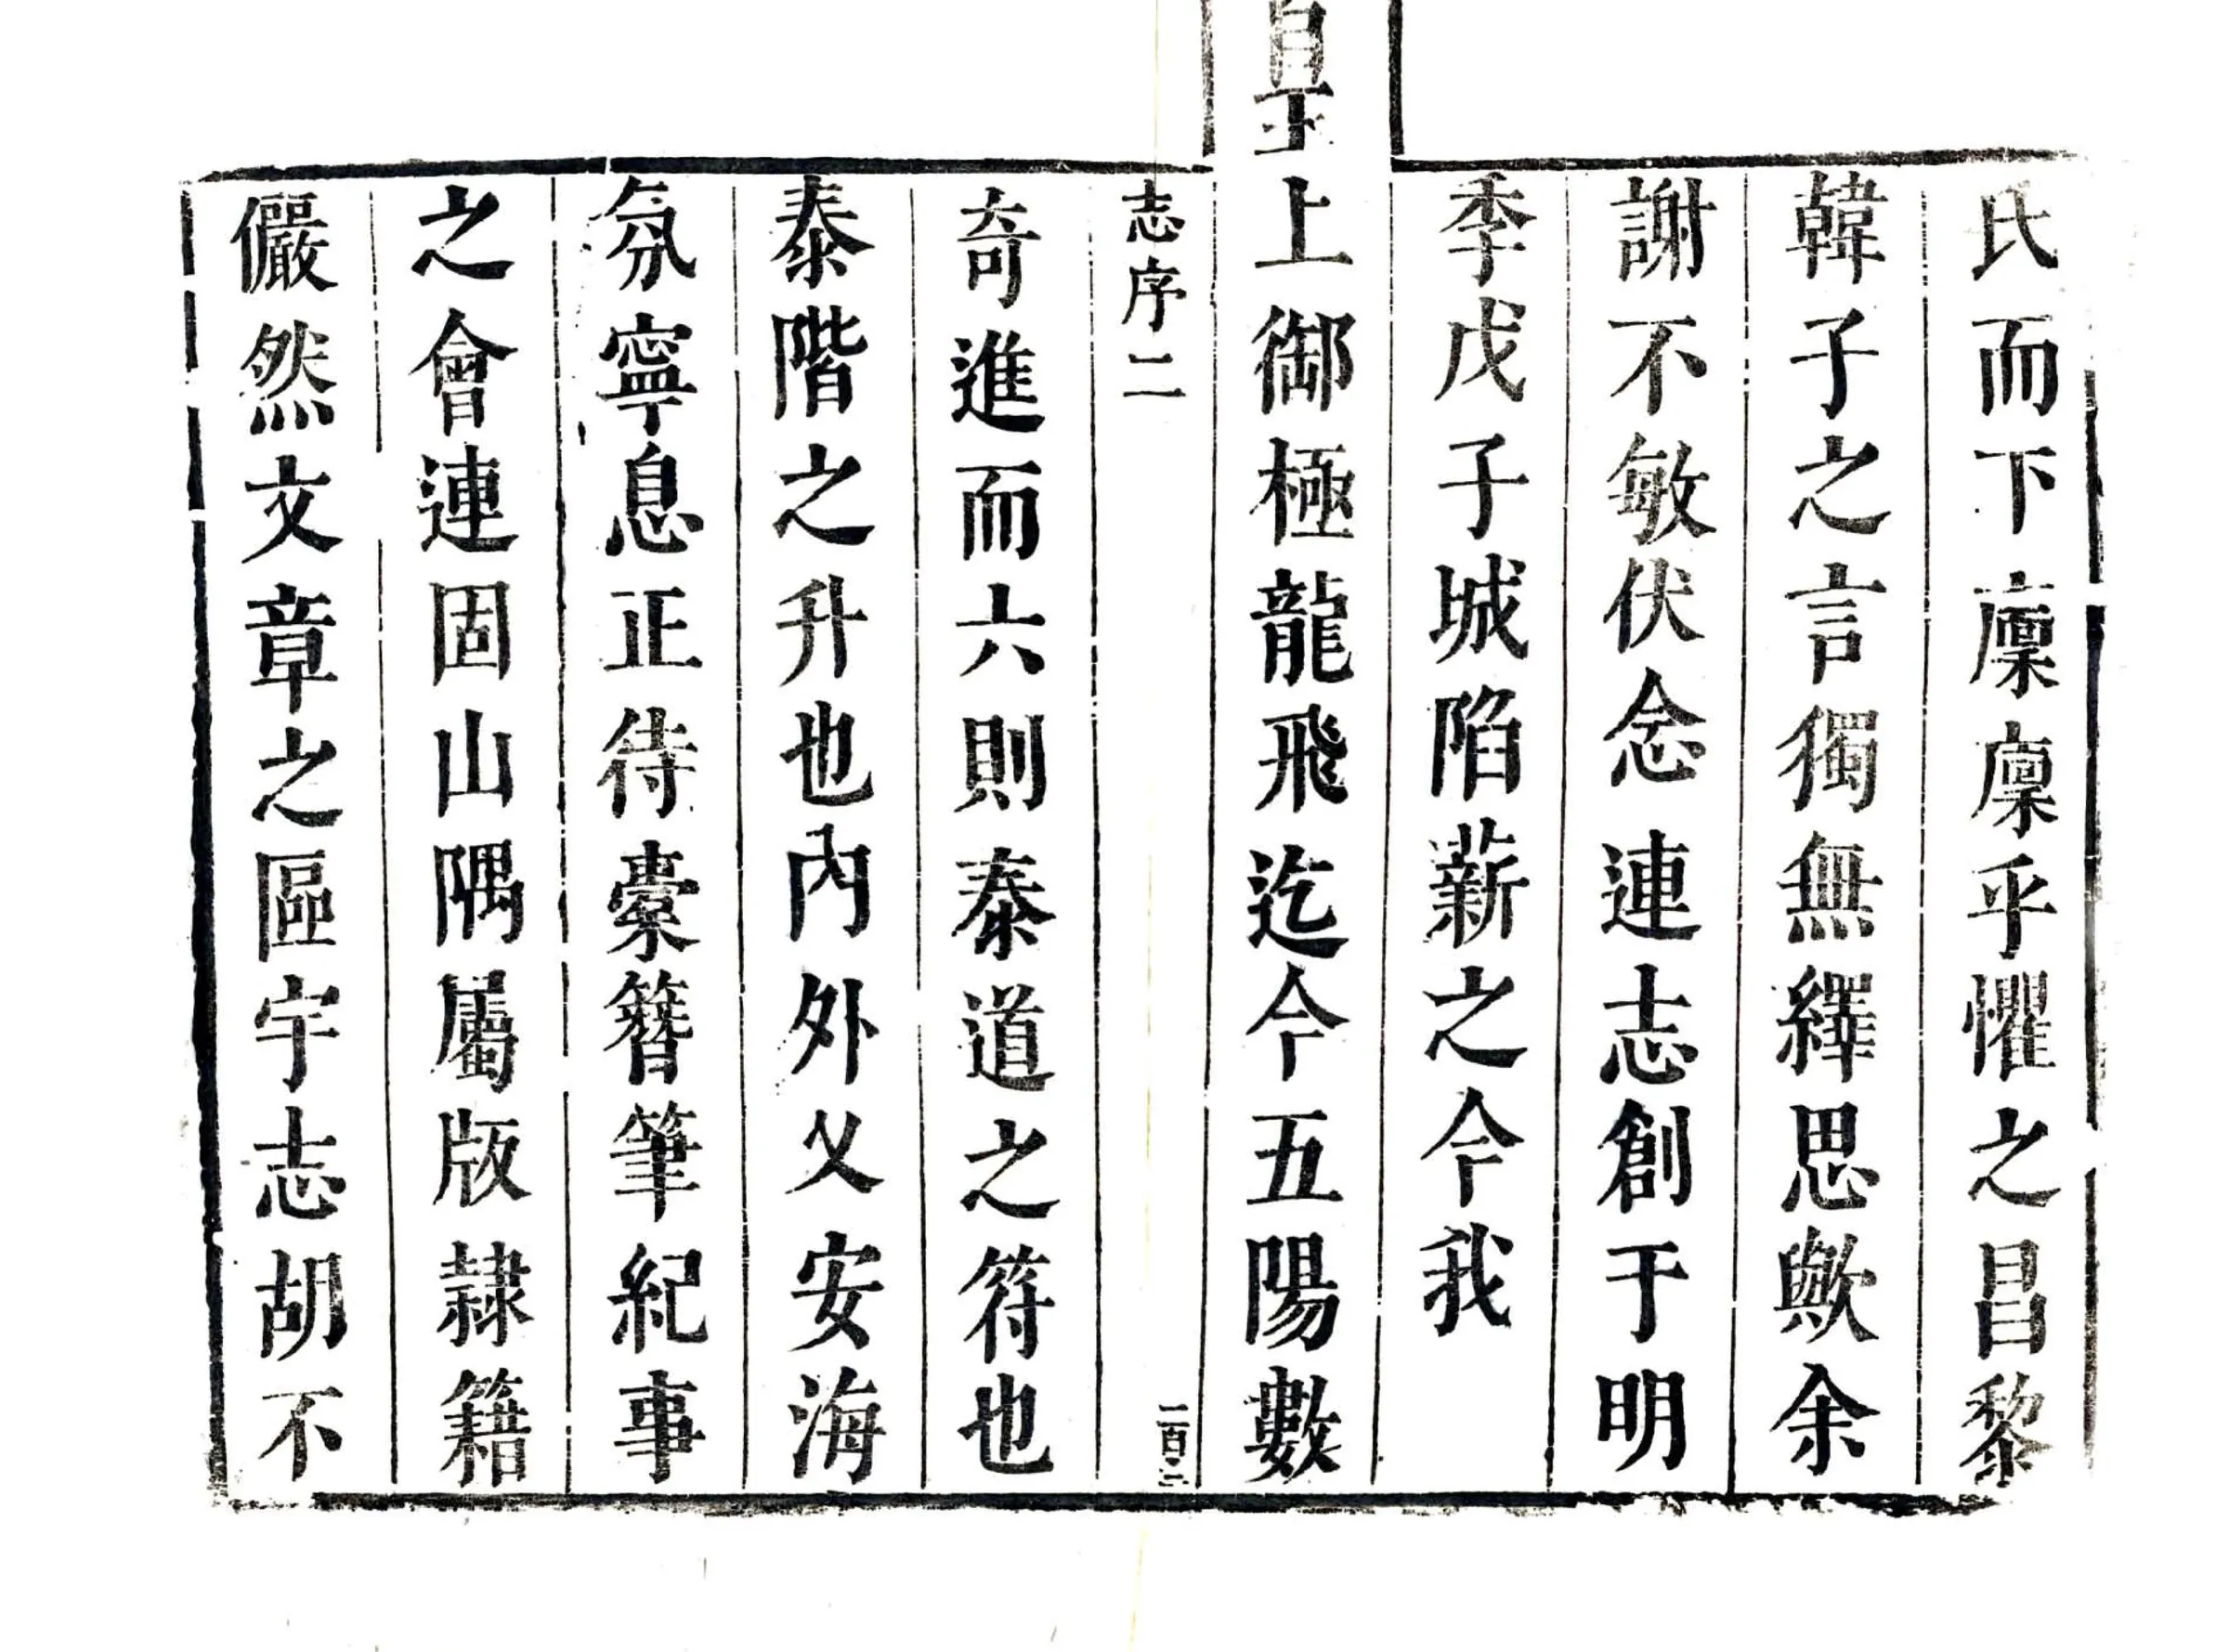 氏而下廩廩乎懼之昌黎
韓子之言獨無繹思歟余
謝不敏伏念連志創于明
季戊子城陷薪之今我
皇上御極龍飛迄今五陽數
志序二
二百二
奇進而六則泰道之符也
泰階之升也內外乂安海
氛寧息正待橐簪筆紀事
之會連固山隅屬版隷籍
儼然文章之區宇志胡不